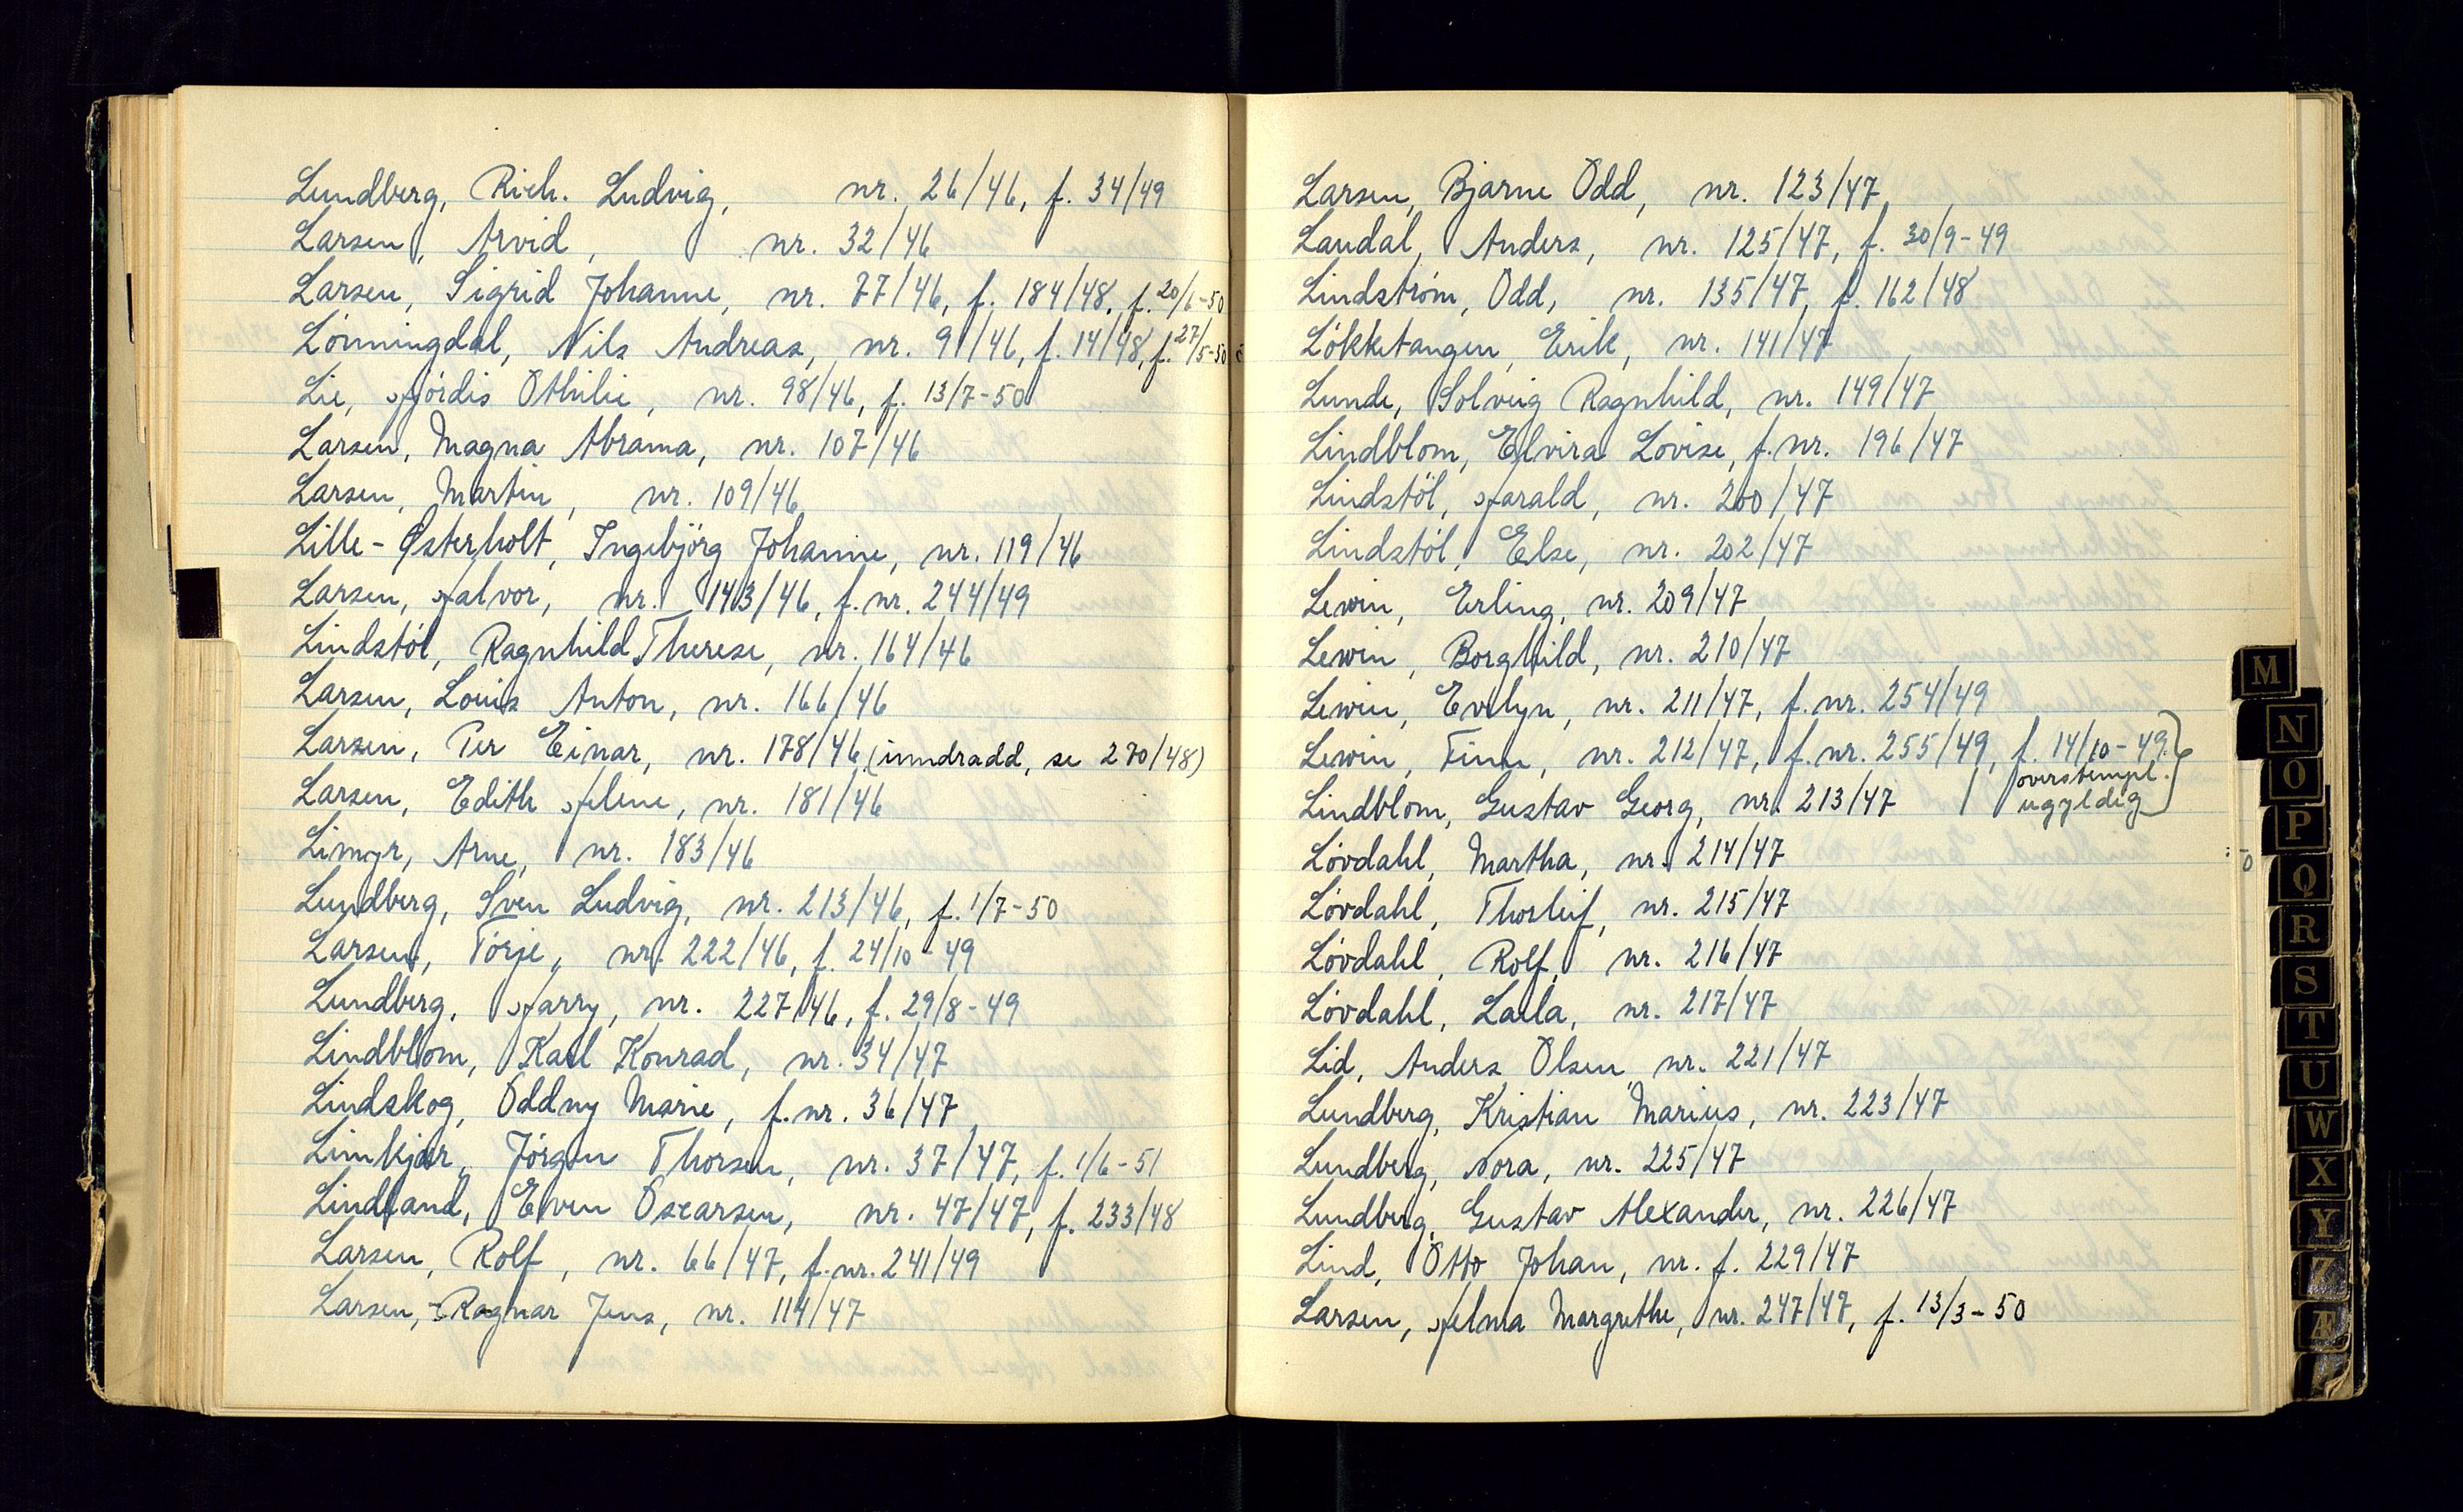 Lundberg, Rich. Ludvig, nr. 26/46, f. 34/49
Larsen, Arvid, nr. 32/46
Larsen, Sigrid Johanne, nr. 77/46, f. 184/48, f. 20/6-50
Lönningdal, Nils Andreas, nr. 91/46, f. 14/48, f. 27/5-50
Lie, Hjördis Othilie, nr. 98/46, f. 13/7-50
Larsen, Magna Abrama, nr. 107/46
Larsen, Martin, nr. 109/46
Lille-Østerholt, Ingebjörg Johanne, nr. 119/46
Larsen, Halvor, nr. 143/46, f. nr. 244/49
Lindstöl, Ragnhild Therese, nr. 164/46
Larsen, Louis Anton, nr. 166/46
Larsen, Per Einar, nr. 178/46 (inndradd, se 270/48)
Larsen, Edith Helene, nr. 181/46
Limyr, Arne, nr. 183/46
Lundberg, Sven Ludvig, nr. 213/46, f. 1/7-50
Larsen, Törje, nr. 222/46, f. 24/10-49
Lundberg, Harry, nr. 227/46, f. 29/8-49
Lindblom, Karl Konrad, nr. 34/47
Lindskog, Oddny Marie, f. nr. 36/47
Limkjær, Jörgen Thorsen, nr. 37/47, f. 1/6-51
Lindland, Even Oscarsen, nr. 47/47, f. 233/48
Larsen, Rolf, nr. 66/47, f. nr. 241/49
Larsen, Ragnar Jens, nr. 114/47
Larsen, Bjarne Odd, nr. 123/47
Laudal, Anders, nr. 125/47, f. 30/9-49
Lindström, Odd, nr. 135/47, f. 162/48
Lökketangen, Erik, nr. 141/47
Lunde, Solveig Ragnhild, nr. 149/47
Lindblom, Elvira Lovise, f. nr. 196/47
Lindstöl, Harald, nr. 200/47
Lindstöl, Else, nr. 202/47
Lewin, Erling, nr. 209/47
Lewin, Borghild, nr. 210/47
Lewin, Evelyn, nr. 211/47, f. nr. 254/49
Lewin, Finn, nr. 212/47, f. nr. 255/49, f. 14/10-49
overstempl.
Lindblom, Gustav Georg, nr. 213/47
ugyldig
Lövdahl, Martha, nr. 214/47
Lövdahl, Thorleif, nr. 215/47
Lövdahl, Rolf, nr. 216/47
Lövdahl, Laila, nr. 217/47
Lid, Anders Olsen, nr. 221/47
Lundberg, Kristian Marius, nr. 223/47
Lundberg, Nora, nr. 225/47
Lundberg, Gustav Alexander, nr. 226/47
Lind, Otto Johan, nr. f. 229/47
Larsen, Helma Margrethe, nr. 247/47, f. 13/3-50
M
N
O
P
Q
R
S
T
U
W
X
Y
Z
Æ